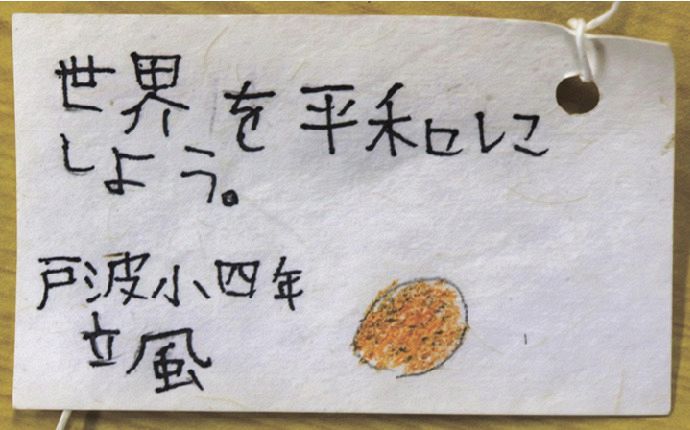 世界を平和に
しよう。
戸波小四年
立風